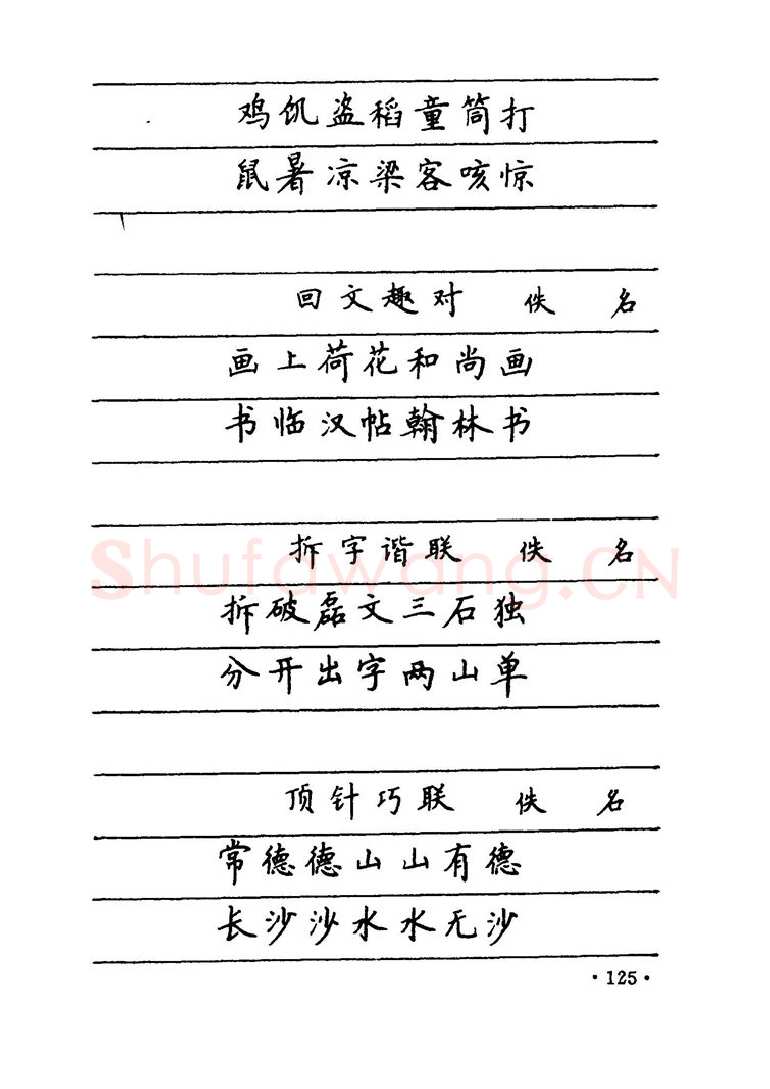 鸡饥盗稻童筒打
鼠暑凉梁客咳惊
回文趣对 佚 名
画上荷花和尚画
书临汉帖翰林书
拆字谐联 佚 名
Shufawang.CN
拆破磊文三石独
分开出字两山单
顶针巧联 佚 名
常德德山山有德
长沙沙水水无沙
·125·